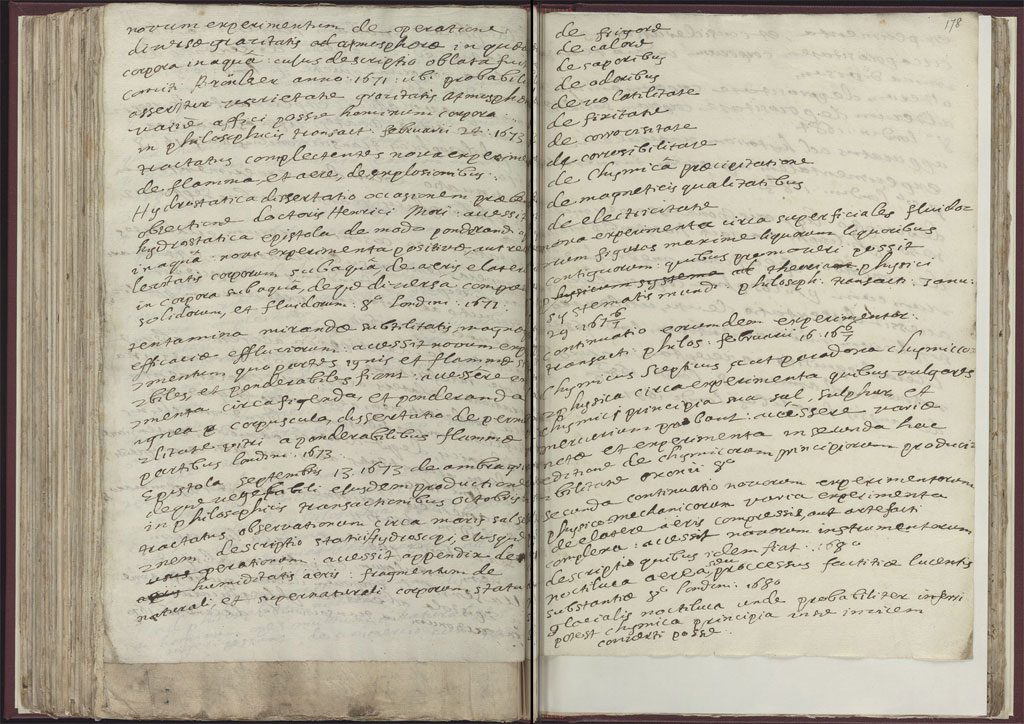 novum experimentum de operatione
diversæ gravitatis ad atmosphoræ in quæ
corpora in aquâ: cuius descriptio oblata fuit
comiti Brounker anno: 1671: ubi probabili
asseritur varietate gravitatis Atmosphæ
varie affici posse hominum corpora
in philosophicis transact: februarii 24: 1673
tractatus complectentes nova experime
de flamma, et aere, de explosionibus:
Hydrostatica dissertatio occasionem præbe
obiectione doctoris Henrici Mori: accessit
hydrostatica epistola de modo ponderandi
in aquâ: nova experimenta positivæ, aut re
levitatis corporum sub aquâ, de aeris elatere
in corpora sub aqua, deque diversa compre
solidorum, et fluidorum: 8º londini: 1671:
tentamina mirandæ subtilitatis, magnæ
efficaciæ effluviorum: accessit novum exp
imentum quo partes ignis et flammæ st
abiles, et ponderabiles fiant: accessere ex
menta circa figenda, et ponderanda
ignea corpuscula, dissertatio de perme
abilitate vitri a ponderabilibus flammæ
partibus londini: 1673
Epistola septembris 13, 1673 de ambra gri
deque vegetabili eiusdem productione
in philosophicis transactionibus octobris
tractatus observationum circa maris salse
inem descriptio statici hydroscopi, eiusque
operationum accessit appendix de
humiditatis aeris: fragmentum de
naturali et supernaturali corporum statu
178
de frigore
de calore
de saporibus
de odoribus
de volatilitate
de fixitate
de corrosivitate
de corrosibilitate
de Chymicâ præcipitatione
de magneticis qualitatibus
de electricitate
nova experimenta circa superficiales fluido=
rum figuras maxime liquorum liquoribus
contiguorum: quibus promoveri possit
physici
systematis mundi: philosoph: transact: Janu:
29: 167 6/7
continuatio eorundem experimentor:
transact: philos: februarii 16 16 6/7
Chymicus scepticus aut paradoxa chymico=
physica circa experimenta quibus vulgares
chymici principia sua sal, sulphur, et
mercurium probant: accessere variæ
notæ et experimenta in secunda hac
editione de chymicorum principiorum produci=
bilitate oxonii: 8º
secunda continuatio novorum experimentorum
physico-mechanicorum varia experimenta
de elatere aeris compressi, aut artefacti
complexa: accessit novorum instrumentorum
descriptio quibus idem fiat: 1680
noctiluca aerea, seu processus factitiæ lucentis
substantiæ 8º londini: 1680
glacialis noctiluca unde probabiliter inferri
potest chymica principia in se invicem
converti posse: